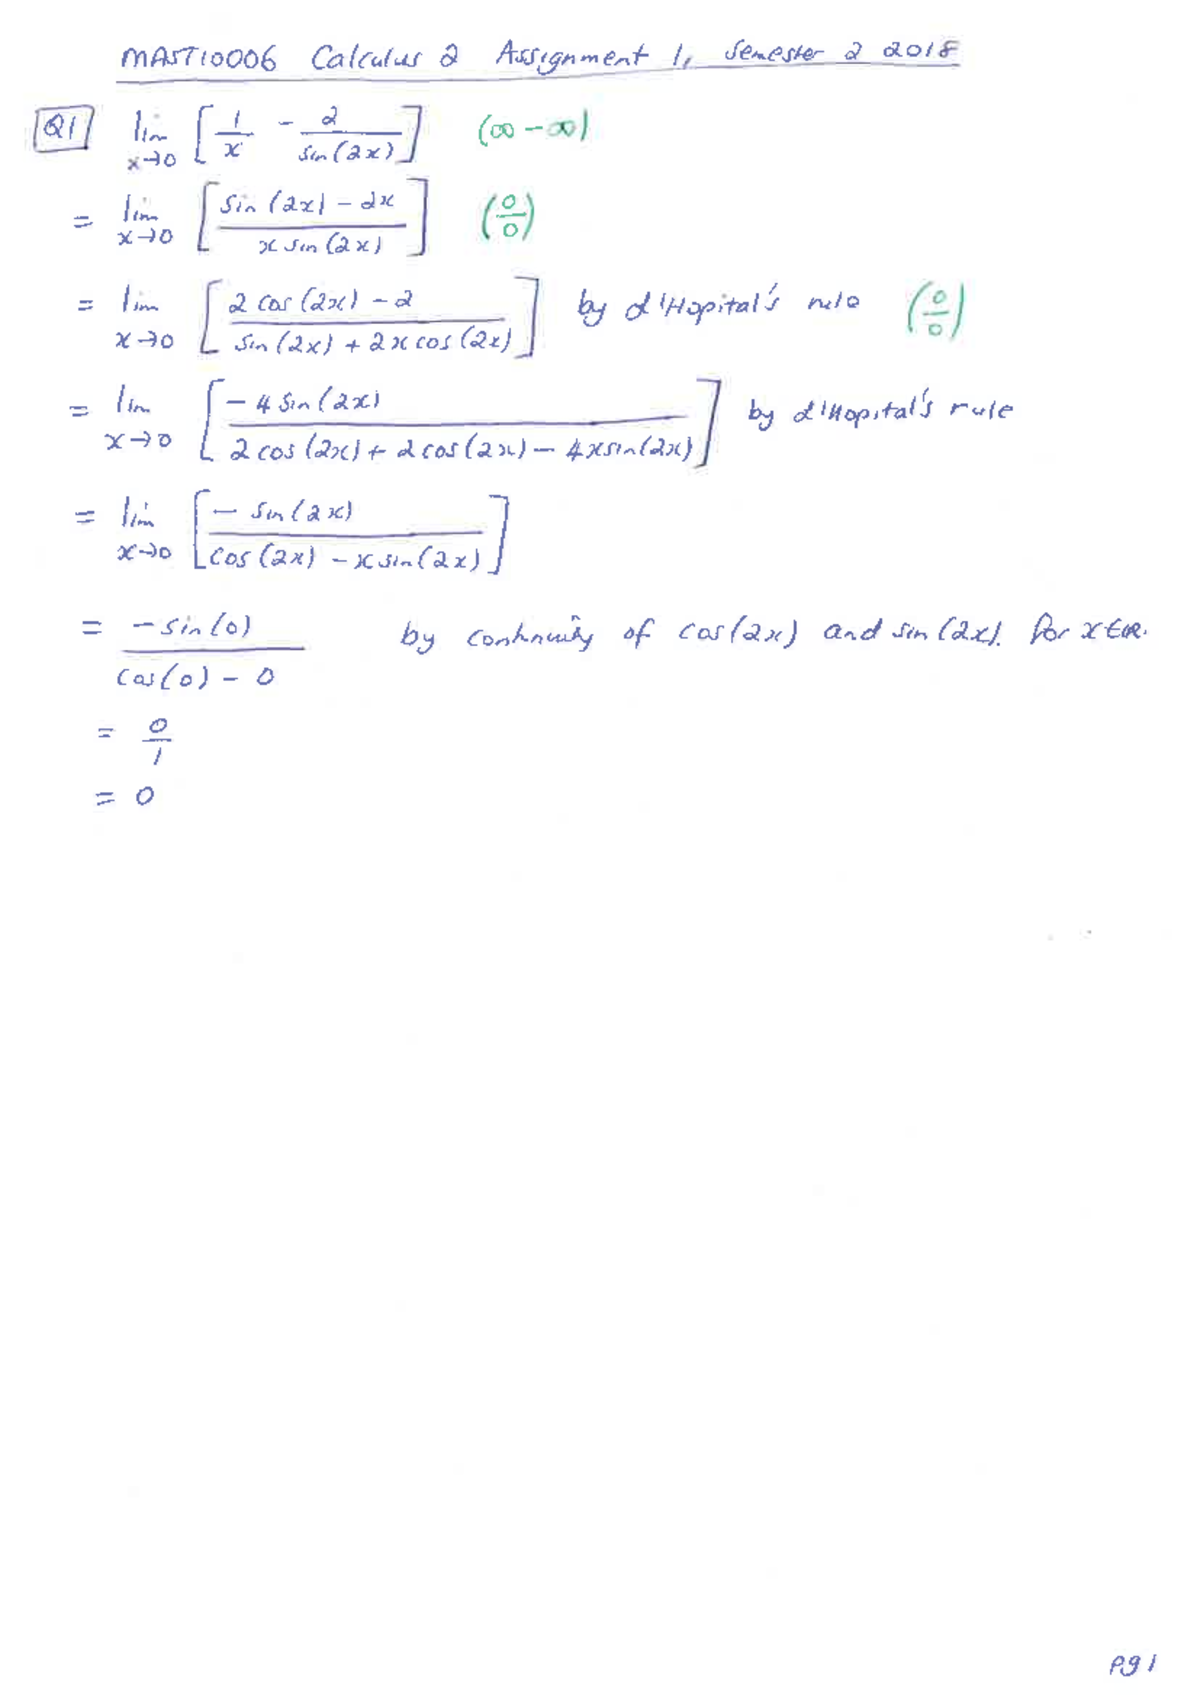 MAST10006 Calculus 2 Assignment 1, Semester 2 2018
Q1 lim x→0 [ 1/x - 2/sin(2x) ] (∞ - ∞)
= lim x→0 [ (sin(2x) - 2x) / (x sin(2x)) ] (0/0)
= lim x→0 [ (2 cos(2x) - 2) / (sin(2x) + 2x cos(2x)) ] by l'Hopital's rule (0/0)
= lim x→0 [ (-4 sin(2x)) / (2 cos(2x) + 2 cos(2x) - 4x sin(2x)) ] by l'Hopital's rule
= lim x→0 [ (- sin(2x)) / (cos(2x) - x sin(2x)) ]
= (- sin(0)) / (cos(0) - 0) by continuity of cos(2x) and sin(2x). for x∈ℝ.
= 0/1
= 0
Pg 1